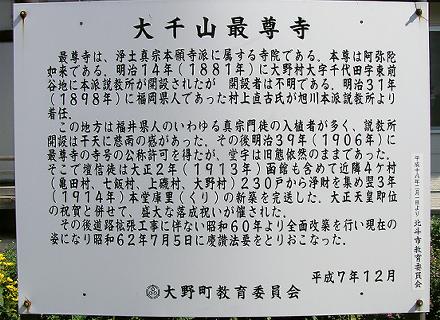 大千山最尊寺
最尊寺は、浄土真宗本願寺派に属する寺院である。本尊は阿弥陀
如来である。明治14年(1881年)に大野村大字千代田字東前
谷地に本派説教所が開設されたが 開設者は不明である。明治31年
(1898年)に福岡県人であった村上直古氏が旭川本派説教所より
着任。
この地方は福井県人のいわゆる真宗門徒の入植者が多く、説教所
開設は干天に慈雨の感があった。その後明治39年(1906年)に
最尊寺の寺号の公称許可を得たが、堂宇は旧態依然のままであった。
そこで壇信徒は大正2年(1913年)函館も含めて近隣4ケ村
(亀田村、七飯村、上磯村、大野村)230戸から浄財を集め翌3年
(1914年)本堂庫里(くり)の新築を完遂した。大正天皇即位
の祝賀と併せて、盛大な落成祝いが催された。
その後道路拡張工事に伴ない昭和60年より全面改築を行い現在の
姿になり昭和62年7月5日に慶讃法要をとりおこなった。
平成7年12月
大野町教育委員会
平成十八年二月一日より 北斗市教育委員会